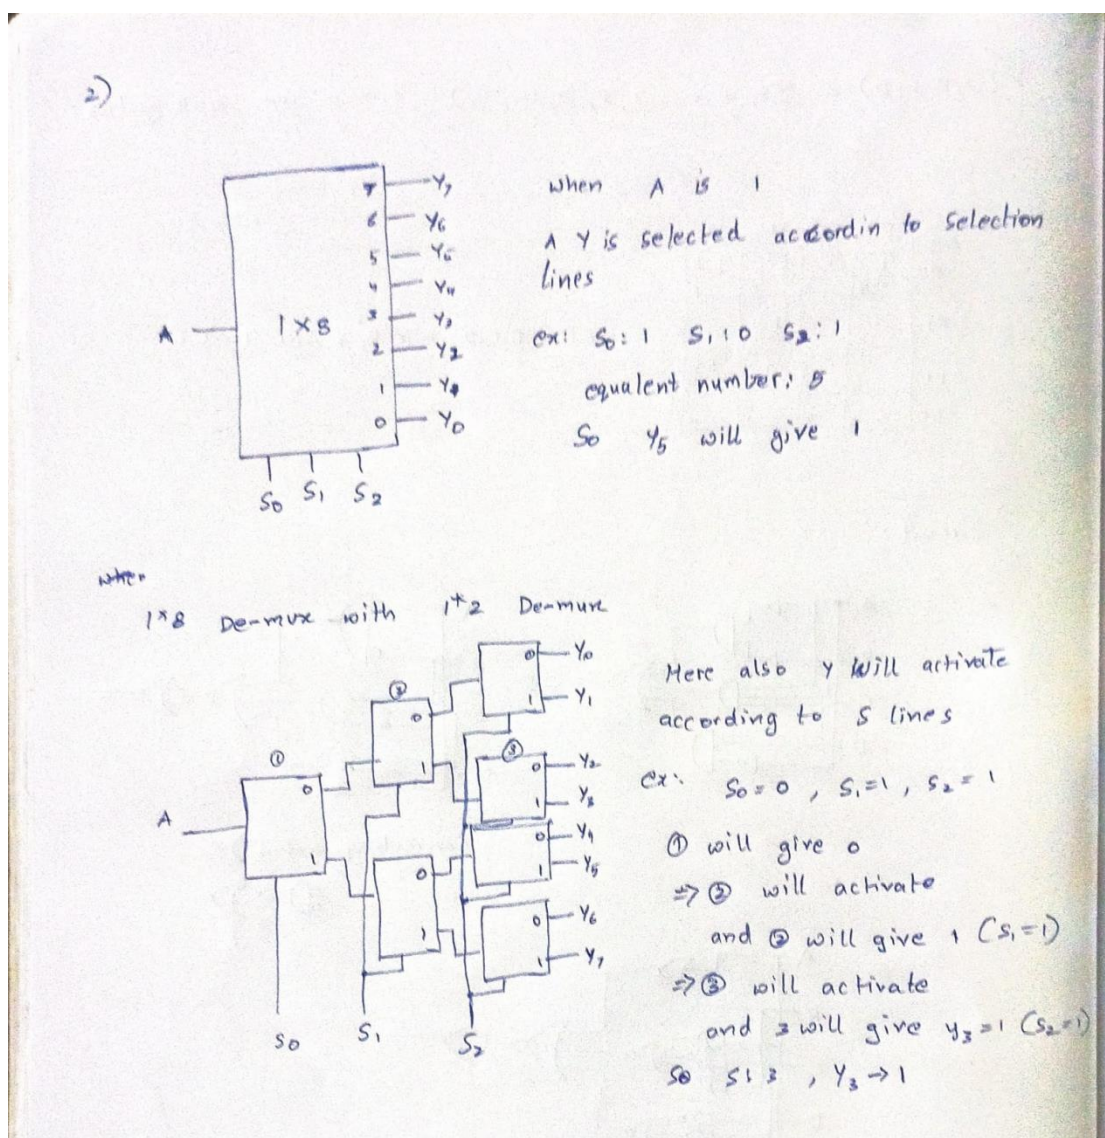 2)
7 Y7
6 Y6
5 Y5
4 Y4
3 Y3
2 Y2
1
0 Y0
A 1x8
S0 S1 S2
When A is 1
A Y is selected accordin to selection
lines
ex: S0: 1 S1: 0 S2: 1
equalent number: 5
So Y5 will give 1
when
1*8 De-mux with 1*2 De-mux
0 Y0
1 Y1
② 0 1
③ 0 Y2
1 Y3
① 0 1
A
0 Y4
1 Y5
0 1
0 Y6
1 Y7
S0 S1 S2
Here also Y will activate
according to S lines
ex: S0 = 0 , S1 = 1 , S2 = 1
① will give 0
=> ② will activate
and ② will give 1 (S1 = 1)
=> ③ will activate
and 3 will give y3 = 1 (S2 = 1)
So S: 3 , Y3 → 1